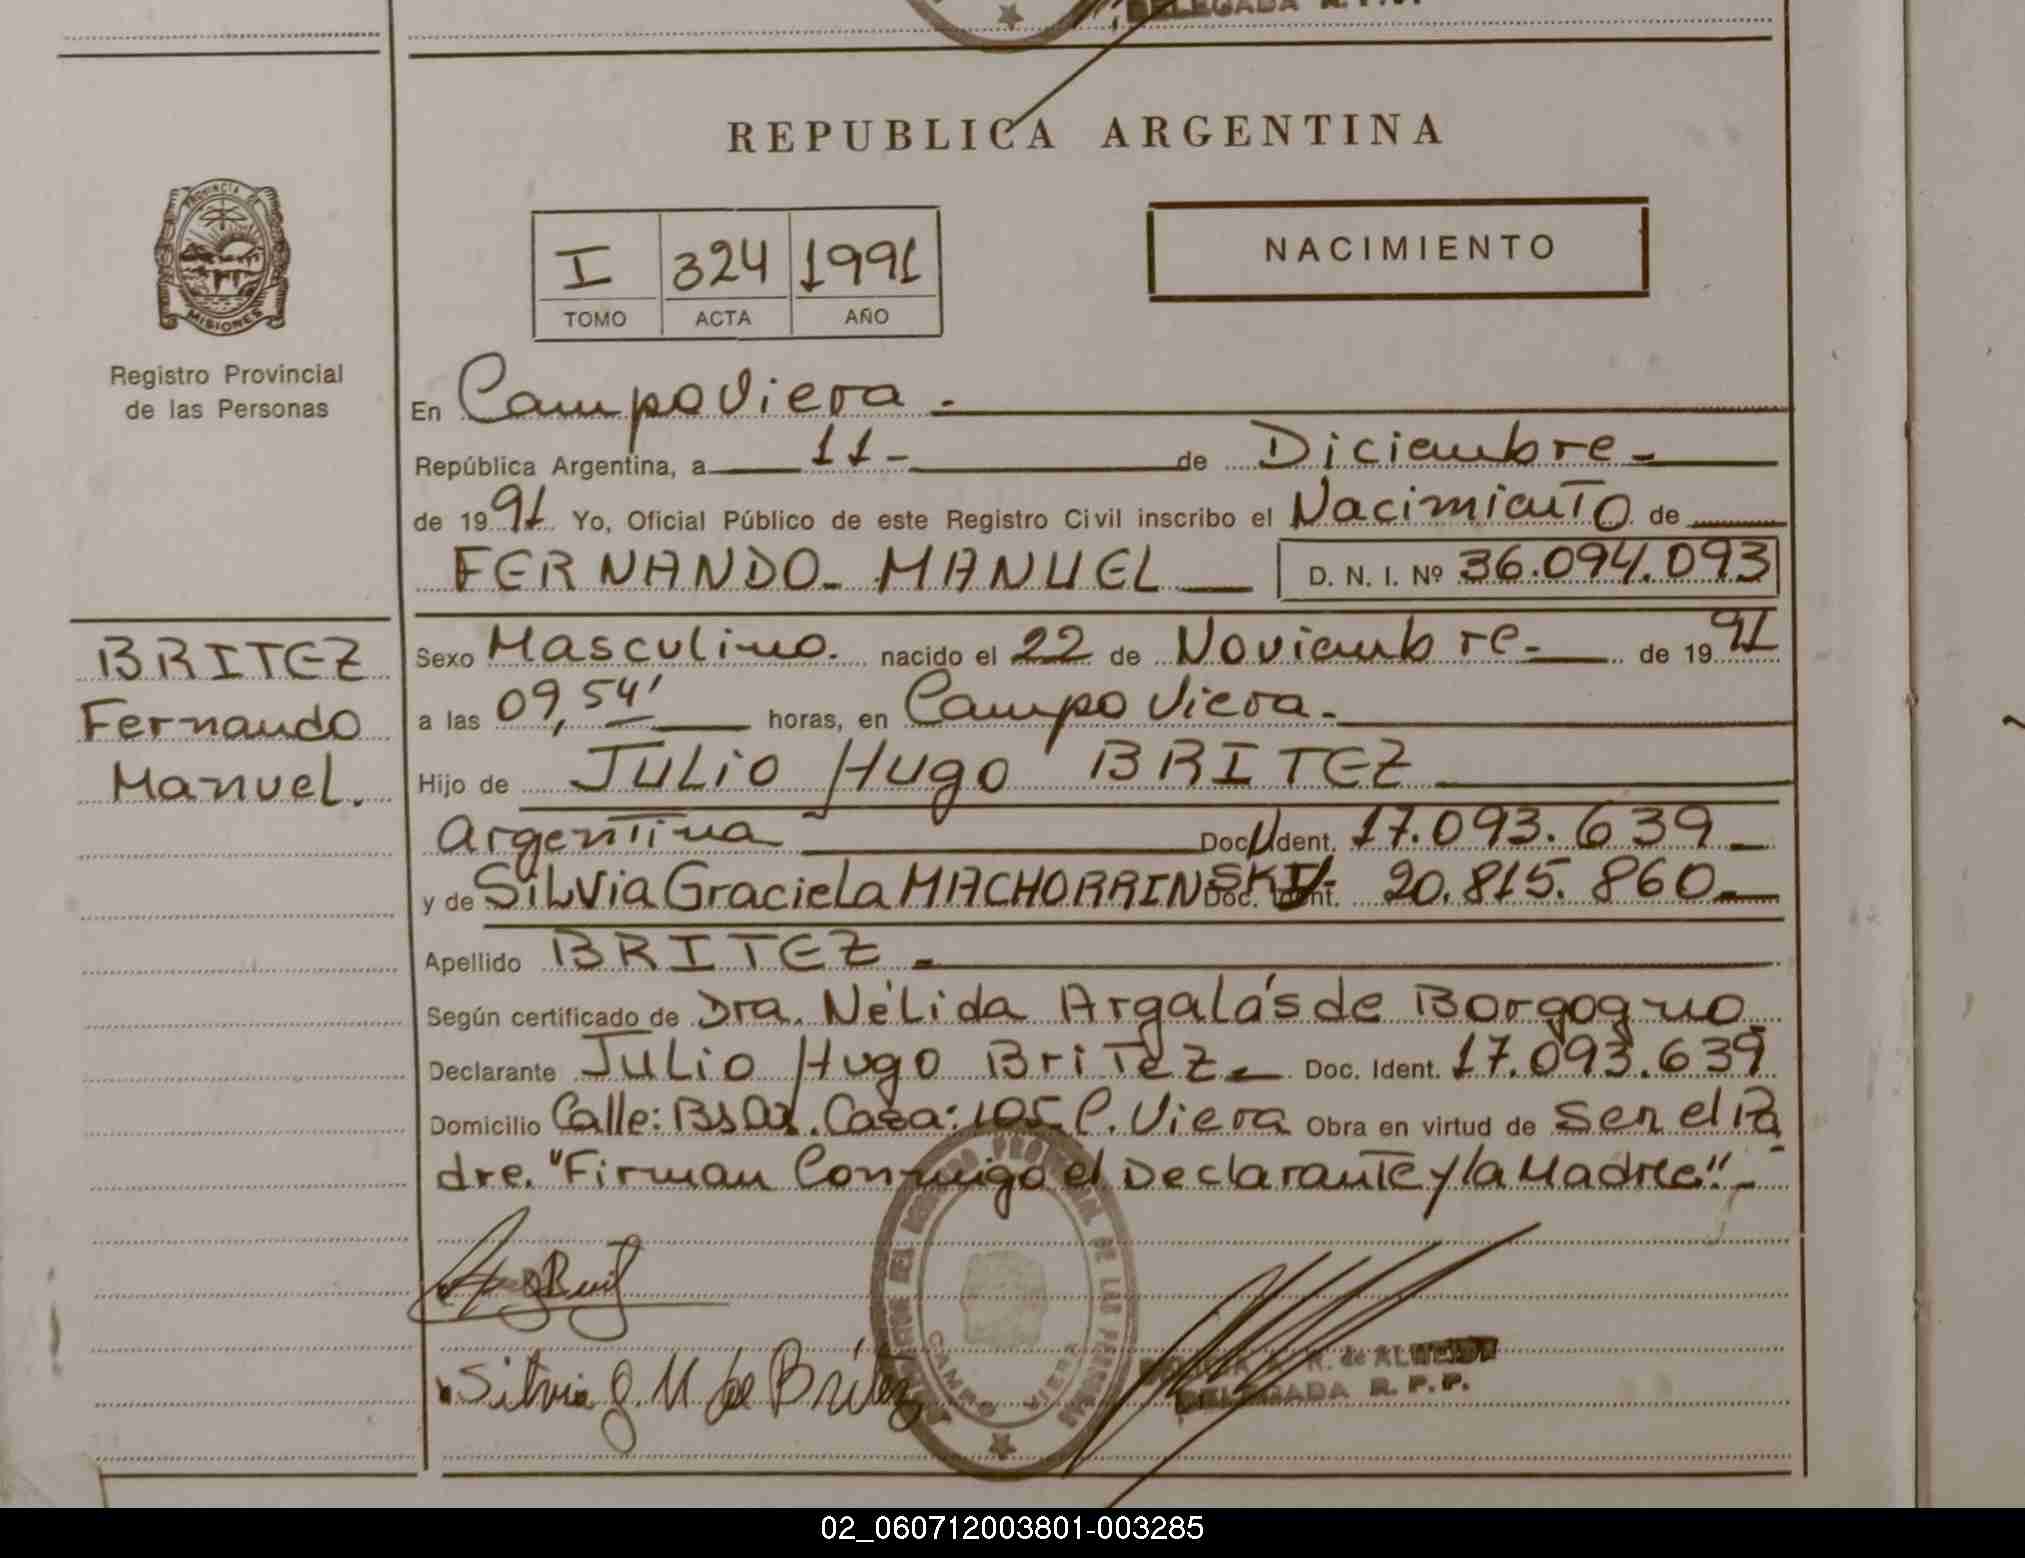 DELEGADA R.P.P.
REPUBLICA ARGENTINA
PROVINCIA DE
MISIONES
Registro Provincial
de las Personas
I 324 1991
TOMO ACTA AÑO
NACIMIENTO
En Campo Viera.
República Argentina, a 11- de Diciembre-
de 1991 Yo, Oficial Público de este Registro Civil inscribo el Nacimiento de
FERNANDO- MANUEL D. N. I. Nº 36.094.093
BRITEZ
Fernando
Manuel.
Sexo Masculino. nacido el 22 de Noviembre- de 1991
a las 09,54' horas, en Campo Viera-
Hijo de JULIO Hugo BRITEZ
Argentina Doc. Ident. 17.093.639-
y de SiLVia GracieLa MACHORRINSKI- Doc. Ident. 20.815.860-
Apellido BRITEZ-
Según certificado de Dra. NéLida Argalás de Borgogno.
Declarante JULio Hugo BriTez- Doc. Ident. 17.093.639
Domicilio Calle: Bs As. Casa: 105 C. Viera Obra en virtud de ser el Pa
dre. "Firman Conmigo el Declarante y la Madre"-
Silvia G. M de Britez
CAMPO VIERA
R. de ALMEIDA
DELEGADA R. P. P.
02_060712003801-003285